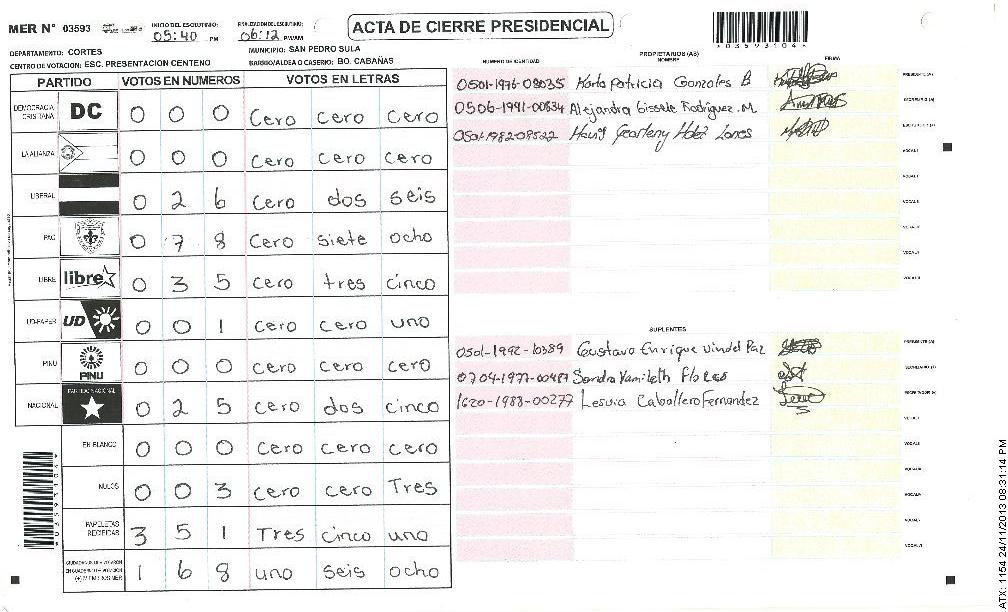 MER N° 03593
INICIO DEL ESCRUTINIO: 05:40 PM
FINALIZACION DEL ESCRUTINIO: 06:12 PM/AM
ACTA DE CIERRE PRESIDENCIAL
*03593104*
DEPARTAMENTO: CORTES
MUNICIPIO: SAN PEDRO SULA
CENTRO DE VOTACION: ESC. PRESENTACION CENTENO
BARRIO/ALDEA O CASERIO: BO. CABAÑAS
PARTIDO VOTOS EN NUMEROS VOTOS EN LETRAS
DEMOCRACIA CRISTIANA DC 0 0 0 Cero Cero Cero
LA ALIANZA 0 0 0 Cero Cero Cero
LIBERAL 0 2 6 Cero dos seis
PAC 0 7 8 Cero siete ocho
LIBRE libre 0 3 5 Cero tres cinco
UD-FAPER UD 0 0 1 Cero Cero uno
PINU PINU 0 0 0 Cero Cero Cero
NACIONAL PARTIDO NACIONAL 0 2 5 Cero dos cinco
EN BLANCO 0 0 0 Cero Cero Cero
NULOS 0 0 3 Cero Cero Tres
PAPELETAS RECIBIDAS 3 5 1 Tres cinco uno
CIUDADANOS QUE VOTARON EN CUADERNO DE VOTACION (+) MIEMBROS MER 1 6 8 uno seis ocho
PROPIETARIOS (AS)
NUMERO DE IDENTIDAD NOMBRE FIRMA
0501-1976-08035 Karla Patricia Gonzales B PRESIDENTE (A)
0506-1991-00834 Alejandra Gissele Rodriguez. M SECRETARIO (A)
0501-1982-08522 ESCRUTADOR (A)
VOCAL I
VOCAL II
VOCAL III
VOCAL IV
VOCAL V
VOCAL VI
SUPLENTES
0501-1992-10389 Gustavo Enrique Vindel Paz PRESIDENTE (A)
0704-1977-00487 Sandra Yamileth Flores SECRETARIO (A)
1620-1988-00277 Lesvia Caballero Fernandez ESCRUTADOR (A)
VOCAL I
VOCAL II
VOCAL III
VOCAL IV
VOCAL V
VOCAL VI
*03593104*
ATX: 1154 24/11/2013 08:31:14 PM